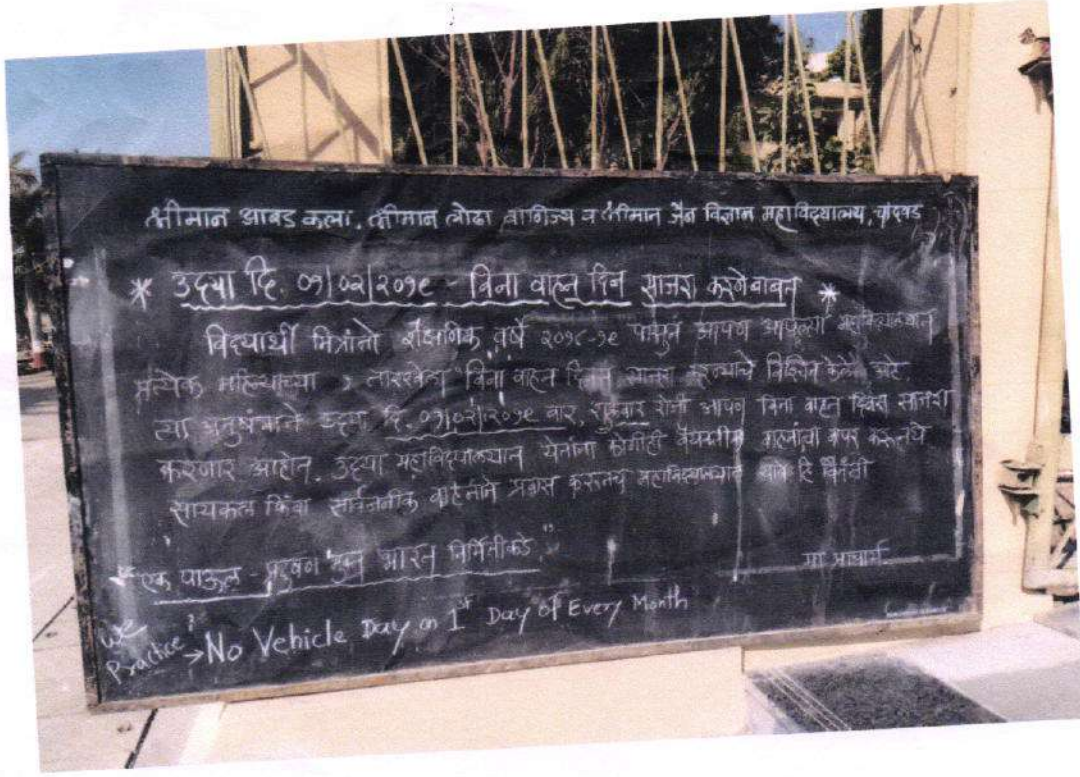 श्रीमान आबड कला, श्रीमान लोढा वाणिज्य व श्रीमान जैन विज्ञान महाविद्यालय, चांदवड
* उद्या दि. ०१/०२/२०१९ - विना वाहन दिन साजरा करणेबाबत *
विद्यार्थी मित्रांनो शैक्षणिक वर्षे २०१८-१९ पासुन आपण आपल्या महाविद्यालयात
प्रत्येक महिन्याच्या १ तारखेला "विना वाहन दिन" साजरा करण्याचे निश्चित केलेले आहे.
त्या अनुषंगाने उद्या दि. ०१/०२/२०१९ वार, शुक्रवार रोजी आपण विना वाहन दिवस साजरा
करणार आहोत. उद्या महाविद्यालयात येतांना कोणीही वैयक्तीक वाहनांचा वापर न करता
सायकल किंवा सार्वजनीक वाहनाने प्रवास करून महाविद्यालयात यावे हि विनंती
"एक पाऊल - प्रदुषण मुक्त भारत निर्मितीकडे"
मा. प्राचार्य
We Practice → No Vehicle Day on 1st Day of Every Month